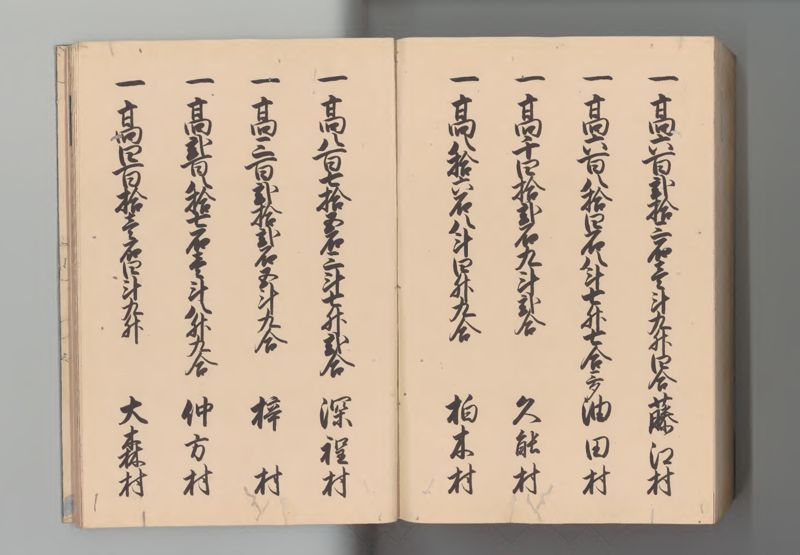 一 高六百弐拾三石壱斗九升四合 藤江村
一 高六百八拾四石八斗七升七合 油田村
一 高千四拾弐石九斗弐合 久能村
一 高八拾六石八斗四升九合 柏木村
一 高八百七拾五石三斗七升弐合 深程村
一 高三百弐拾弐石五斗九合 梓村
一 高弐百八拾七石壱斗八升九合 仲方村
一 高四百拾壱石四斗九升 大森村